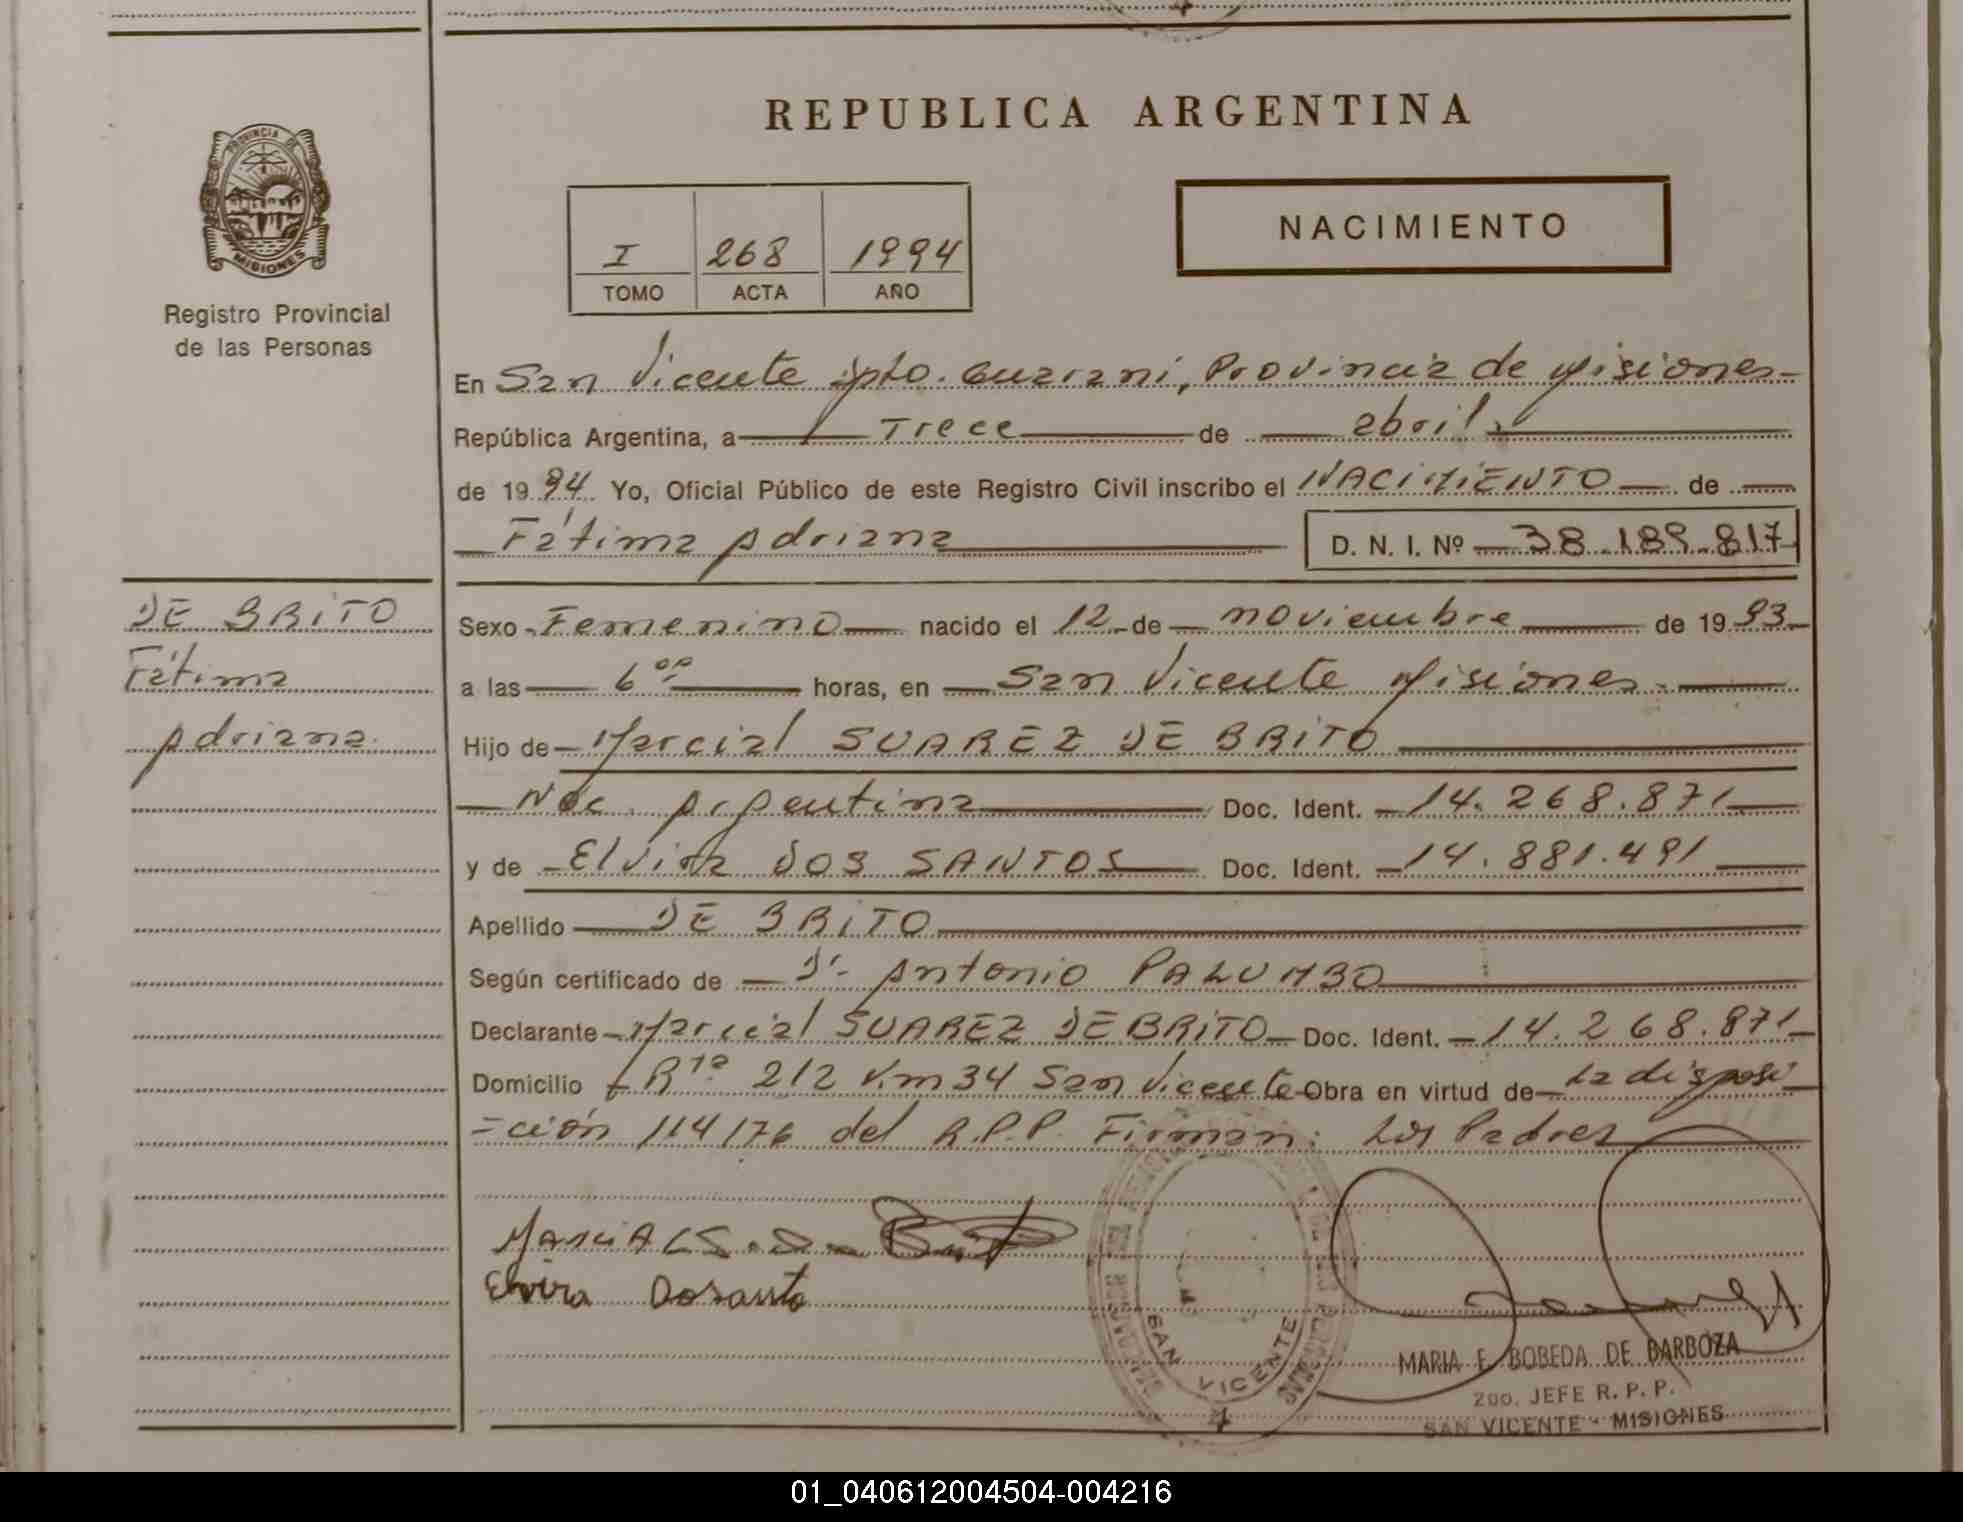 REPUBLICA ARGENTINA
PROVINCIA DE
MISIONES
Registro Provincial
de las Personas
I 268 1994
TOMO ACTA AÑO
NACIMIENTO
En San Vicente Dpto. Guarani, Provincia de Misiones
República Argentina, a Trece de abril
de 1994 Yo, Oficial Público de este Registro Civil inscribo el NACIMIENTO de
Fátima Adriana D. N. I. Nº 38.189.817
DE BRITO
Fátima
Adriana
Sexo Femenino nacido el 12 de noviembre de 1993
a las 6 horas, en San Vicente Misiones
Hijo de Marcial SUAREZ DE BRITO
Nac. Argentina Doc. Ident. 14.268.871
y de Elvira DOS SANTOS Doc. Ident. 14.881.491
Apellido DE BRITO
Según certificado de Dr. Antonio PALUMBO
Declarante Marcial SUAREZ DE BRITO Doc. Ident. 14.268.871
Domicilio Rta. 212 Km 34 San Vicente Obra en virtud de La disposi
=ción 114/76 del R.P.P. Firman: Los Padres
Elvira Dosanto
SAN VICENTE
4
MARIA E. BOBEDA DE BARBOZA
2do. JEFE R. P. P.
SAN VICENTE - MISIONES
01_040612004504-004216